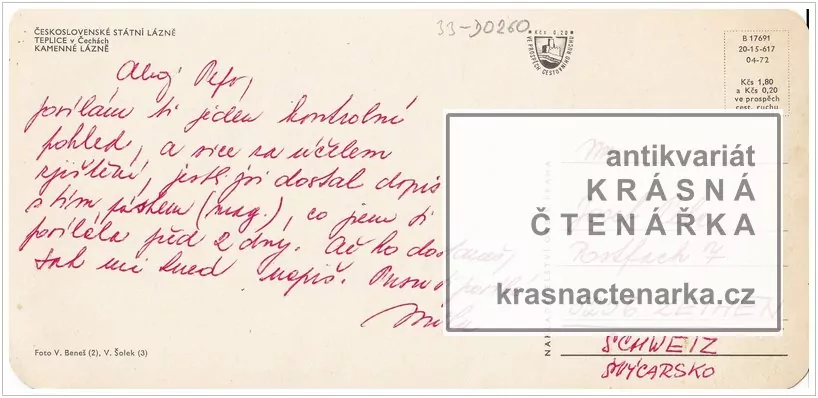 ČESKOSLOVENSKÉ STÁTNÍ LÁZNĚ
TEPLICE v Čechách
KAMENNÉ LÁZNĚ
33-D0260
Kčs 0,20
VE PROSPĚCH CESTOVNÍHO RUCHU
B 17691
20-15-617
04-72
Kčs 1,80
a Kčs 0,20
ve prospěch
cest. ruchu
Ahoj Petr,
posílám ti jeden kontrolní
pohled, a sice za účelem
zjištění, jestli jsi dostal dopis
s tím páskem (mag.), co jsem ti
posílala před 2 dny. Až ho dostaneš,
tak mi hned napiš.
antikvariát
KRÁSNÁ
ČTENÁŘKA
krasnactenarka.cz
Postfach 7
SCHWEIZ
ŠVÝCARSKO
Foto V. Beneš (2), V. Šolek (3)